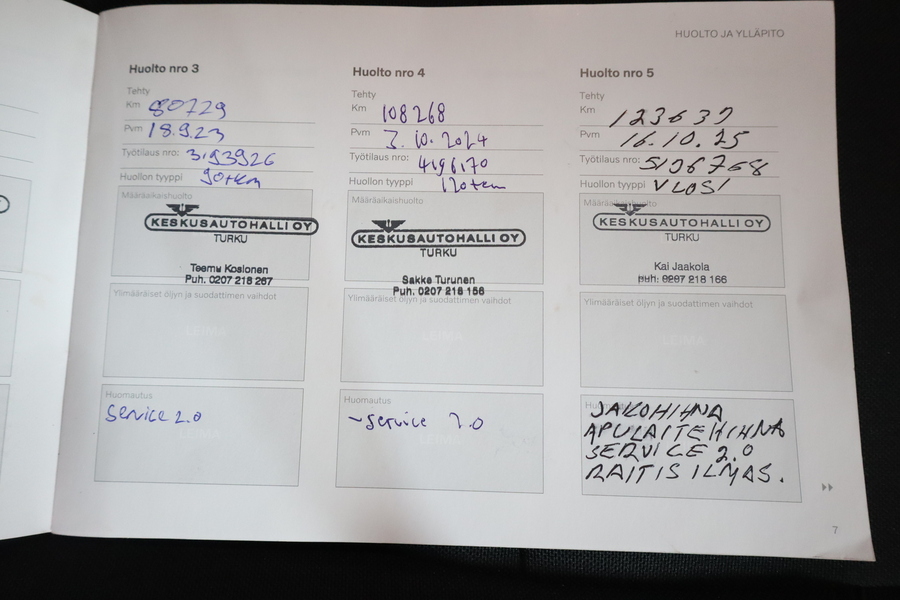 HUOLTO JA YLLÄPITO
Huolto nro 3
Tehty
Km 80729
Pvm 18.9.23
Työtilaus nro: 3193926
Huollon tyyppi 90tkm
Määräaikaishuolto
KESKUSAUTOHALLI OY
TURKU
Teemu Kosionen
Puh. 0207 218 267
Ylimääräiset öljyn ja suodattimen vaihdot
LEIMA
Huomautus
Service 2.0
Huolto nro 4
Tehty
Km 108268
Pvm 3.10.2024
Työtilaus nro: 4196170
Huollon tyyppi 120tkm
Määräaikaishuolto
KESKUSAUTOHALLI OY
TURKU
Sakke Turunen
Puh. 0207 218 156
Ylimääräiset öljyn ja suodattimen vaihdot
LEIMA
Huomautus
~service 2.0
Huolto nro 5
Tehty
Km 123637
Pvm 16.10.25
Työtilaus nro: 5136768
Huollon tyyppi VUOSI
Määräaikaishuolto
KESKUSAUTOHALLI OY
TURKU
Kai Jaakola
Puh. 0207 218 166
Ylimääräiset öljyn ja suodattimen vaihdot
LEIMA
Huomautus
JAKOHIHNA
APULAITEHIHNA
SERVICE 2.0
RAITIS ILMAS.
7